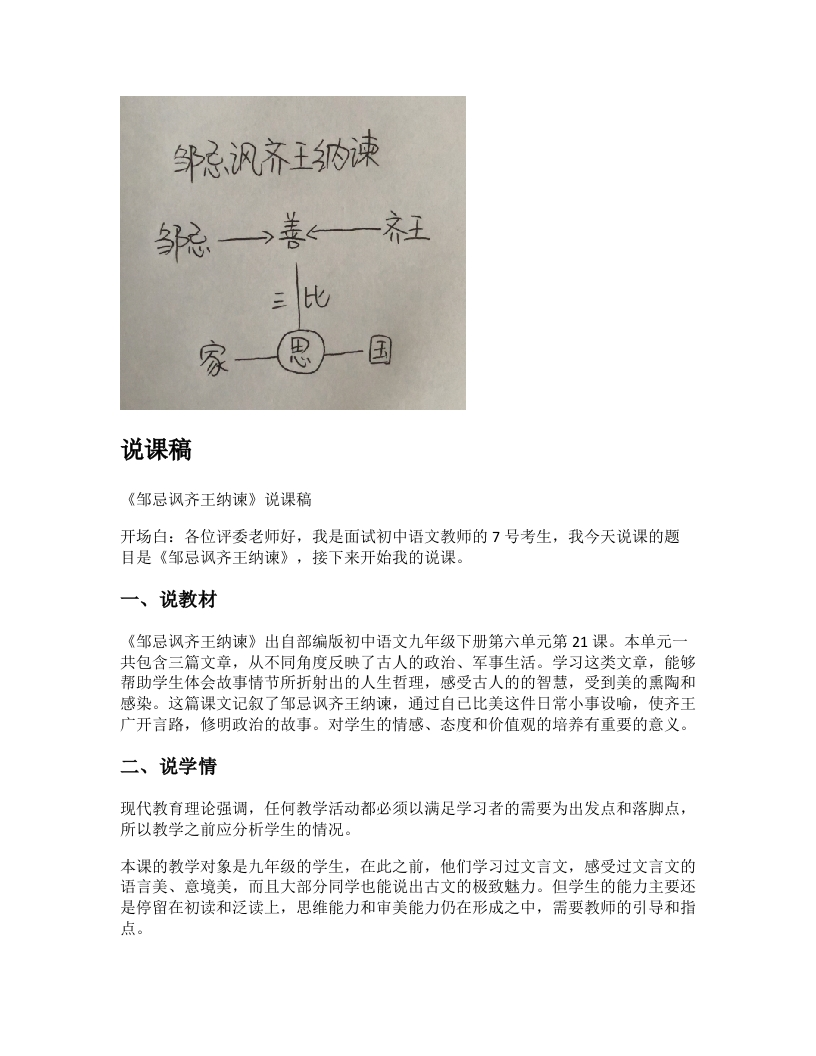 邹忌讽齐王纳谏
邹忌 善 齐王
三 比
家 思 国
说课稿
《邹忌讽齐王纳谏》说课稿
开场白：各位评委老师好，我是面试初中语文教师的 7 号考生，我今天说课的题
目是《邹忌讽齐王纳谏》，接下来开始我的说课。
一、说教材
《邹忌讽齐王纳谏》出自部编版初中语文九年级下册第六单元第 21 课。本单元一
共包含三篇文章，从不同角度反映了古人的政治、军事生活。学习这类文章，能够
帮助学生体会故事情节所折射出的人生哲理，感受古人的的智慧，受到美的熏陶和
感染。这篇课文记叙了邹忌讽齐王纳谏，通过自已比美这件日常小事设喻，使齐王
广开言路，修明政治的故事。对学生的情感、态度和价值观的培养有重要的意义。
二、说学情
现代教育理论强调，任何教学活动都必须以满足学习者的需要为出发点和落脚点，
所以教学之前应分析学生的情况。
本课的教学对象是九年级的学生，在此之前，他们学习过文言文，感受过文言文的
语言美、意境美，而且大部分同学也能说出古文的极致魅力。但学生的能力主要还
是停留在初读和泛读上，思维能力和审美能力仍在形成之中，需要教师的引导和指
点。